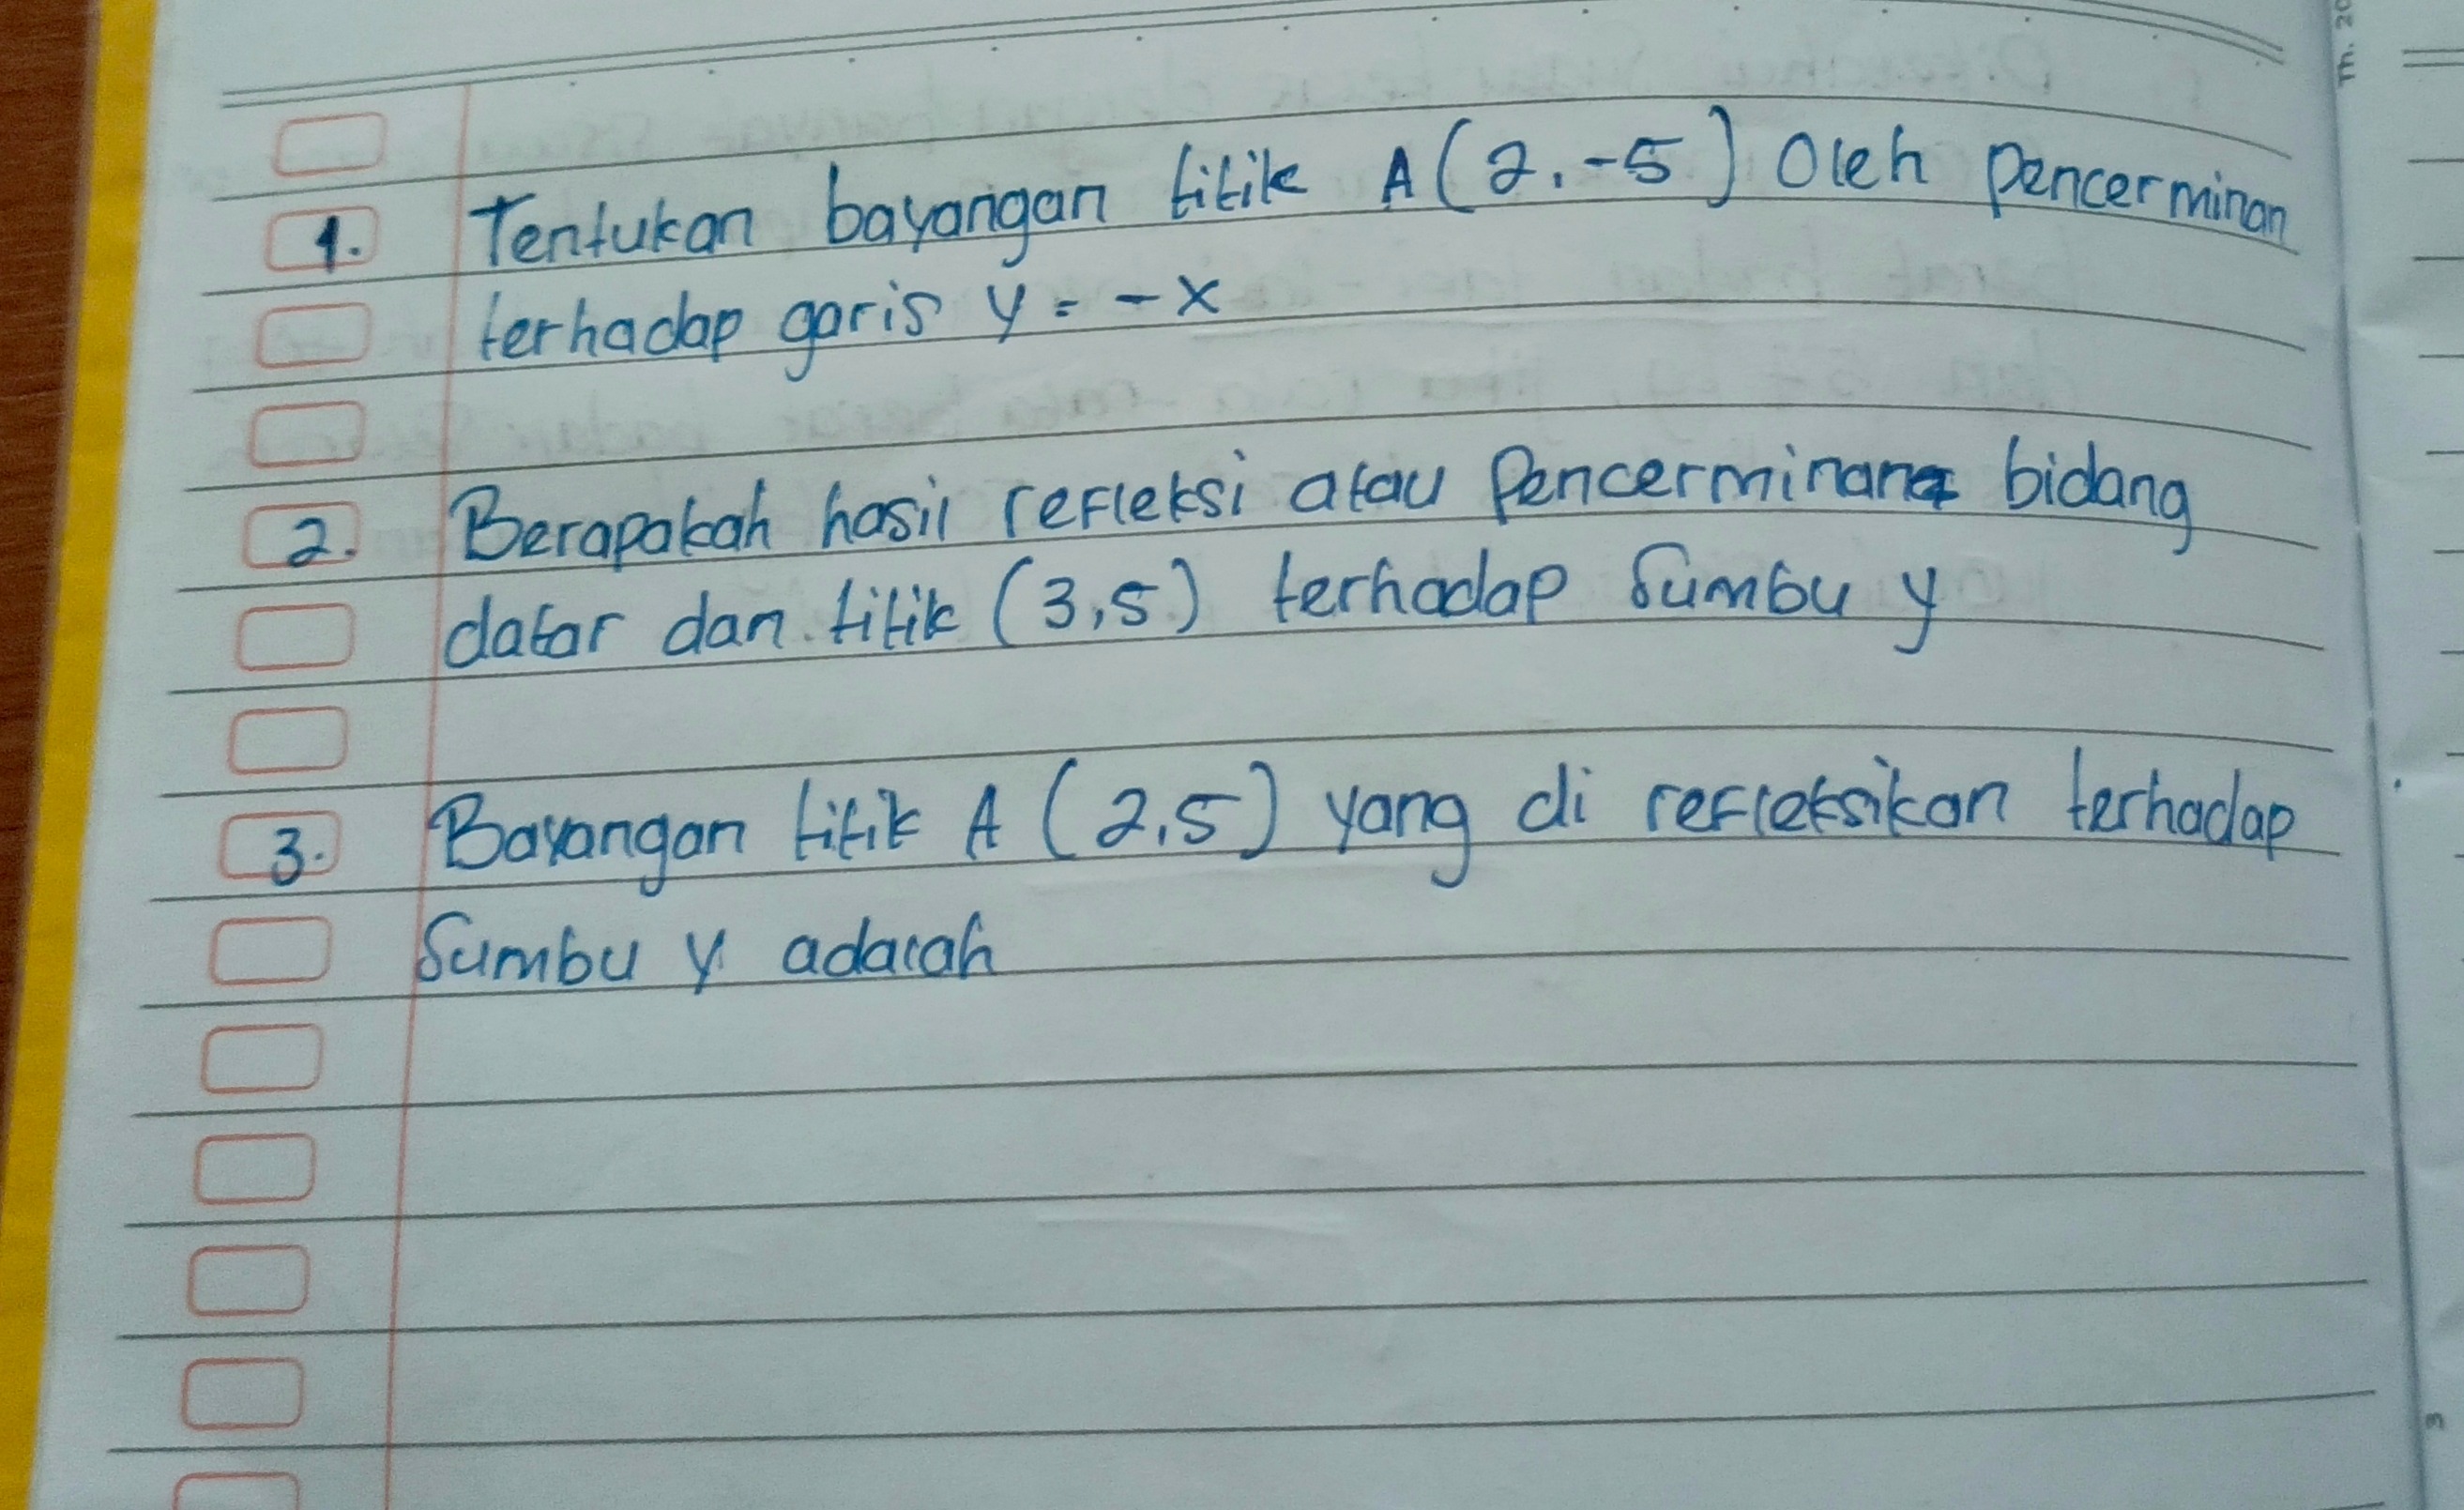 Th. 20
1. Tentukan bayangan titik A (2, -5) Oleh Pencerminan
terhadap garis y = - x
2. Berapakah hasil refleksi atau Pencerminan bidang
datar dan titik (3,5) terhadap Sumbu y
3. Bayangan titik A (2,5) yang di refleksikan terhadap
Sumbu y adalah
3